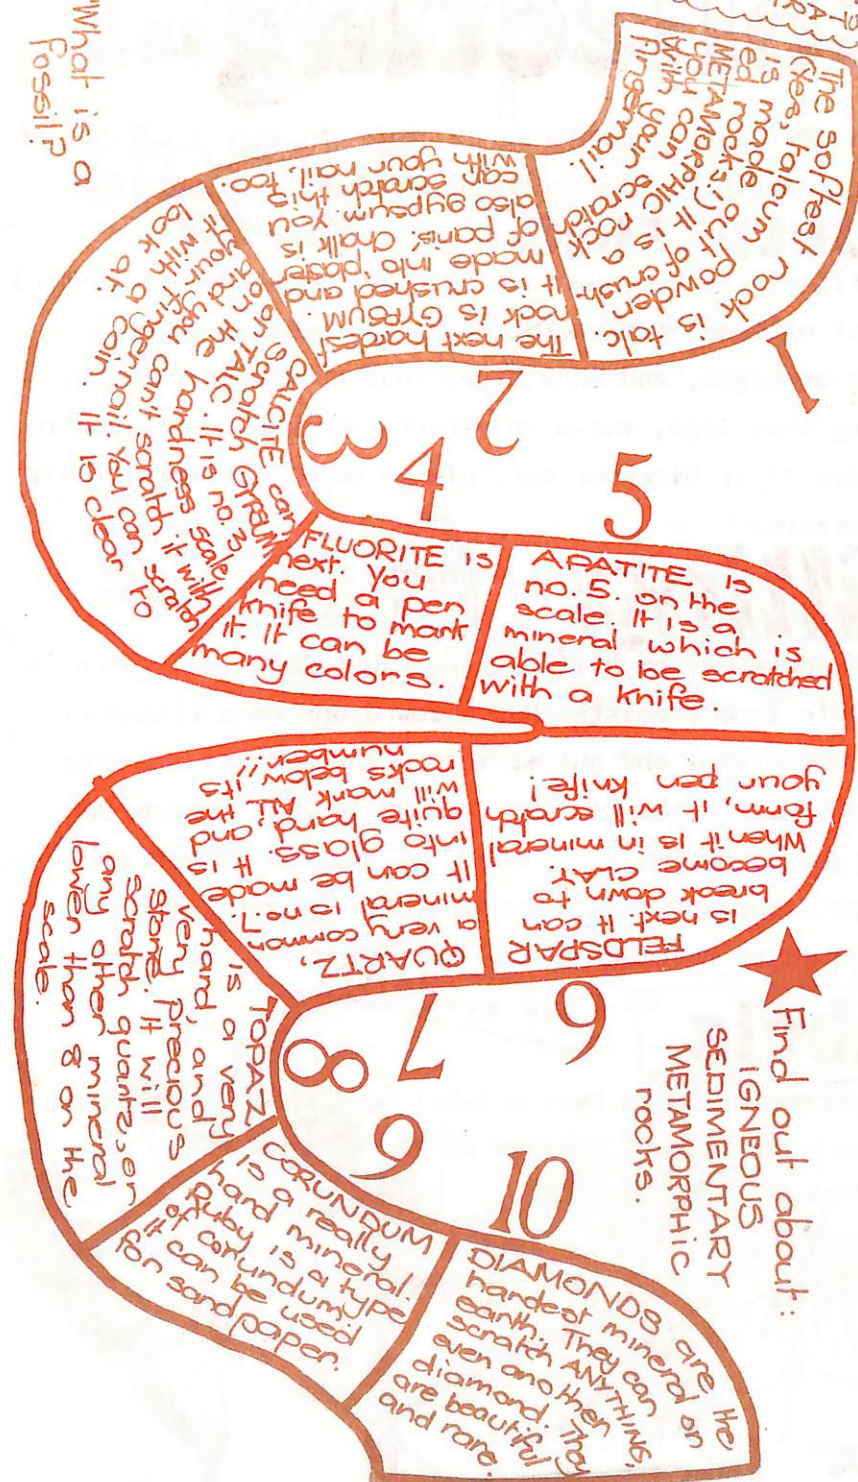 The softest rock is talc
(Yes, talcum powder
is made out of crush-
ed rocks!) It is a
METAMORPHIC rock
you can scratch
with your
fingernail!
1
The next hardest
rock is GYPSUM.
It is crushed and
made into 'plaster
of paris'. Chalk is
also gypsum. You
can scratch this
with your nail, too.
2
CALICITE can
scratch GYPSUM
or TALC. It is no. 3
on the hardness scale,
and you can't scratch it with
your fingernail. You can scratch
it with a coin. It is clear to
look at.
3
FLUORITE is
next. You
need a pen
knife to mark
it. It can be
many colors.
4
APATITE is
no. 5. on the
scale. It is a
mineral which is
able to be scratched
with a knife.
5
FELDSPAR
is next. It can
break down to
become CLAY.
When it is in mineral
form, it will scratch
your pen knife!
6
QUARTZ,
a very common
mineral is no. 7.
It can be made
into glass. It is
quite hard, and
will mark ALL the
rocks below its
number!!
7
TOPAZ
is a very
hard, and
very precious
stone. It will
scratch quartz, or
any other mineral
lower than 8 on the
scale.
8
CORUNDUM
is a really
hard mineral.
Ruby is a type
of corundum.
It can be used
for sandpaper.
9
DIAMONDS are the
hardest mineral on
earth. They can
scratch ANYTHING,
even another
diamond. They
are beautiful
and rare.
10
"What is a
fossil?
Find out about:
IGNEOUS
SEDIMENTARY
METAMORPHIC
rocks.